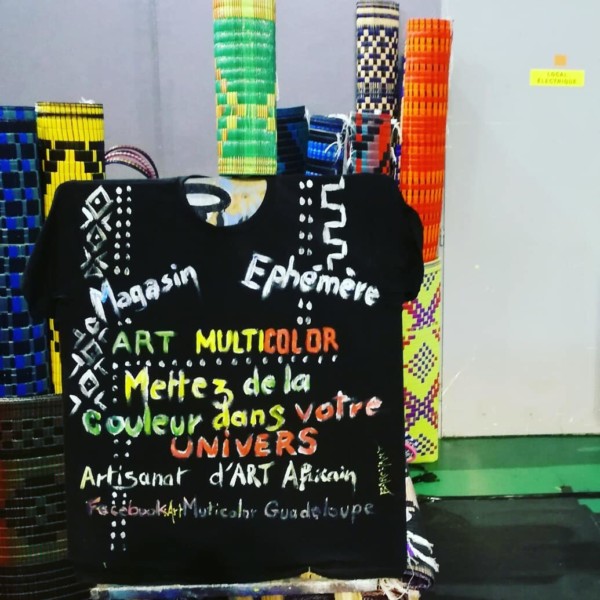 LOCAL
ELECTRIQUE
Magasin Ephémère
ART MULTICOLOR
Mettez de la
Couleur dans votre
UNIVERS
Artisanat d'ART Africain
Facebook Art Multicolor Guadeloupe